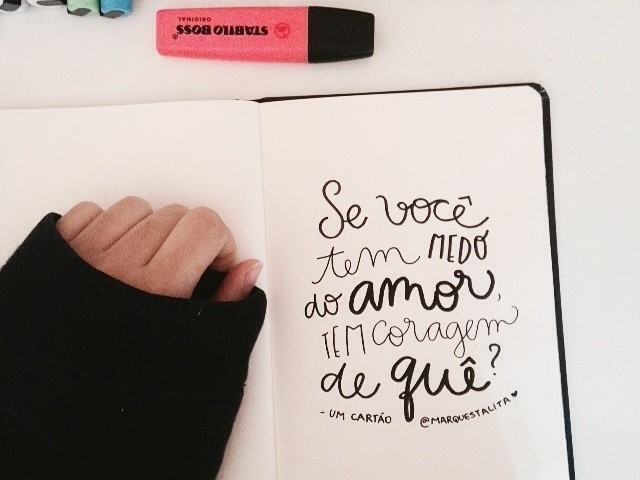 STABILO BOSS
ORIGINAL
Se você
tem MEDO
do amor,
TEM coragem
de quê?
- UM CARTÃO @MARQUESTALITA